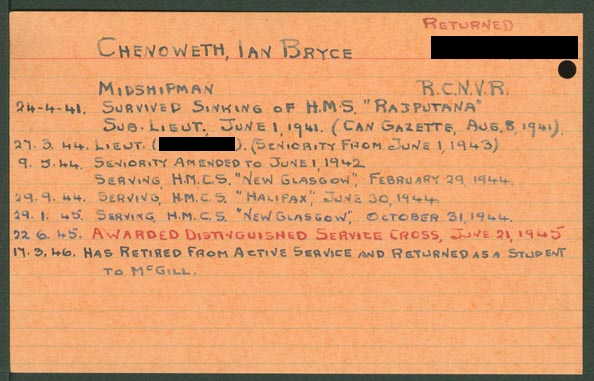 RETURNED
CHENOWETH, IAN BRYCE
MIDSHIPMAN R.C.N.V.R.
24-4-41. SURVIVED SINKING OF H.M.S. "RAJPUTANA"
SUB. LIEUT, JUNE 1, 1941. (CAN GAZETTE, AUG, 8, 1941).
27. 3. 44. LIEUT. ( ). (SENIORITY FROM JUNE 1, 1943)
9. 5. 44. SENIORITY AMENDED TO JUNE 1, 1942
SERVING, H.M.C.S. "NEW GLASGOW", FEBRUARY 29, 1944.
29. 9. 44. SERVING, H.M.C.S. "HALIFAX", JUNE 30, 1944.
29. 1. 45. SERVING, H.M.C.S. "NEW GLASGOW", OCTOBER 31, 1944.
22. 6. 45. AWARDED DISTINGUISHED SERVICE CROSS, JUNE 21, 1945
17. 3. 46. HAS RETIRED FROM ACTIVE SERVICE AND RETURNED AS A STUDENT
TO MCGILL.